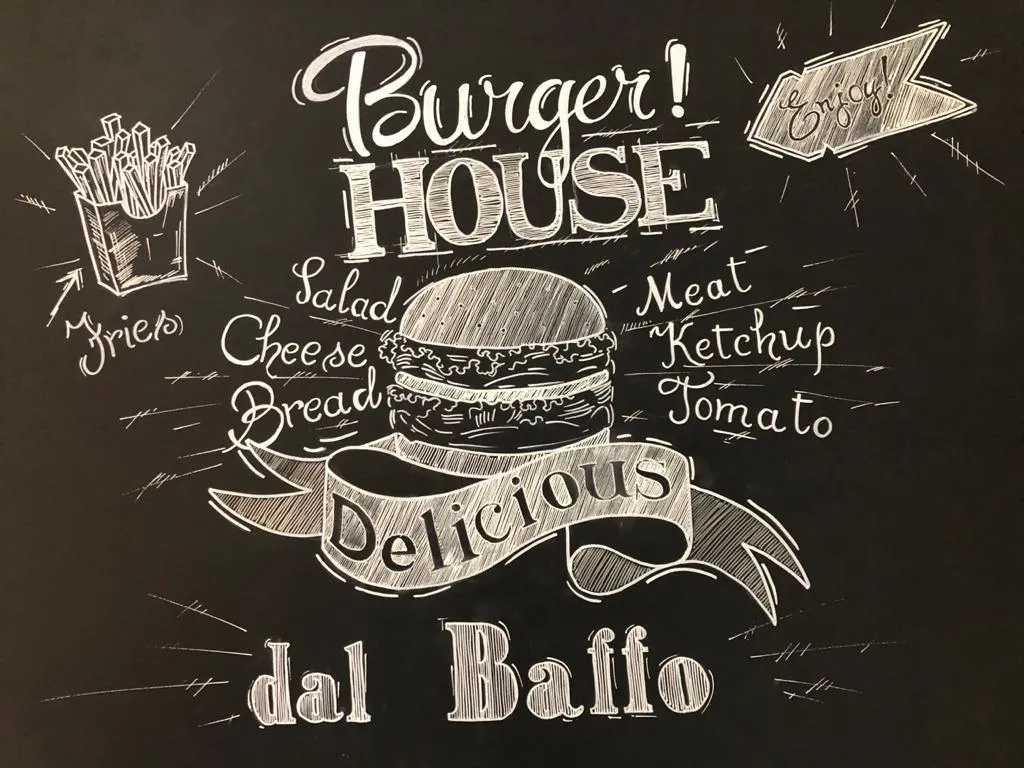 Burger!
HOUSE
Enjoy!
Fries
Salad
Cheese
Bread
Meat
Ketchup
Tomato
Delicious
dal Baffo